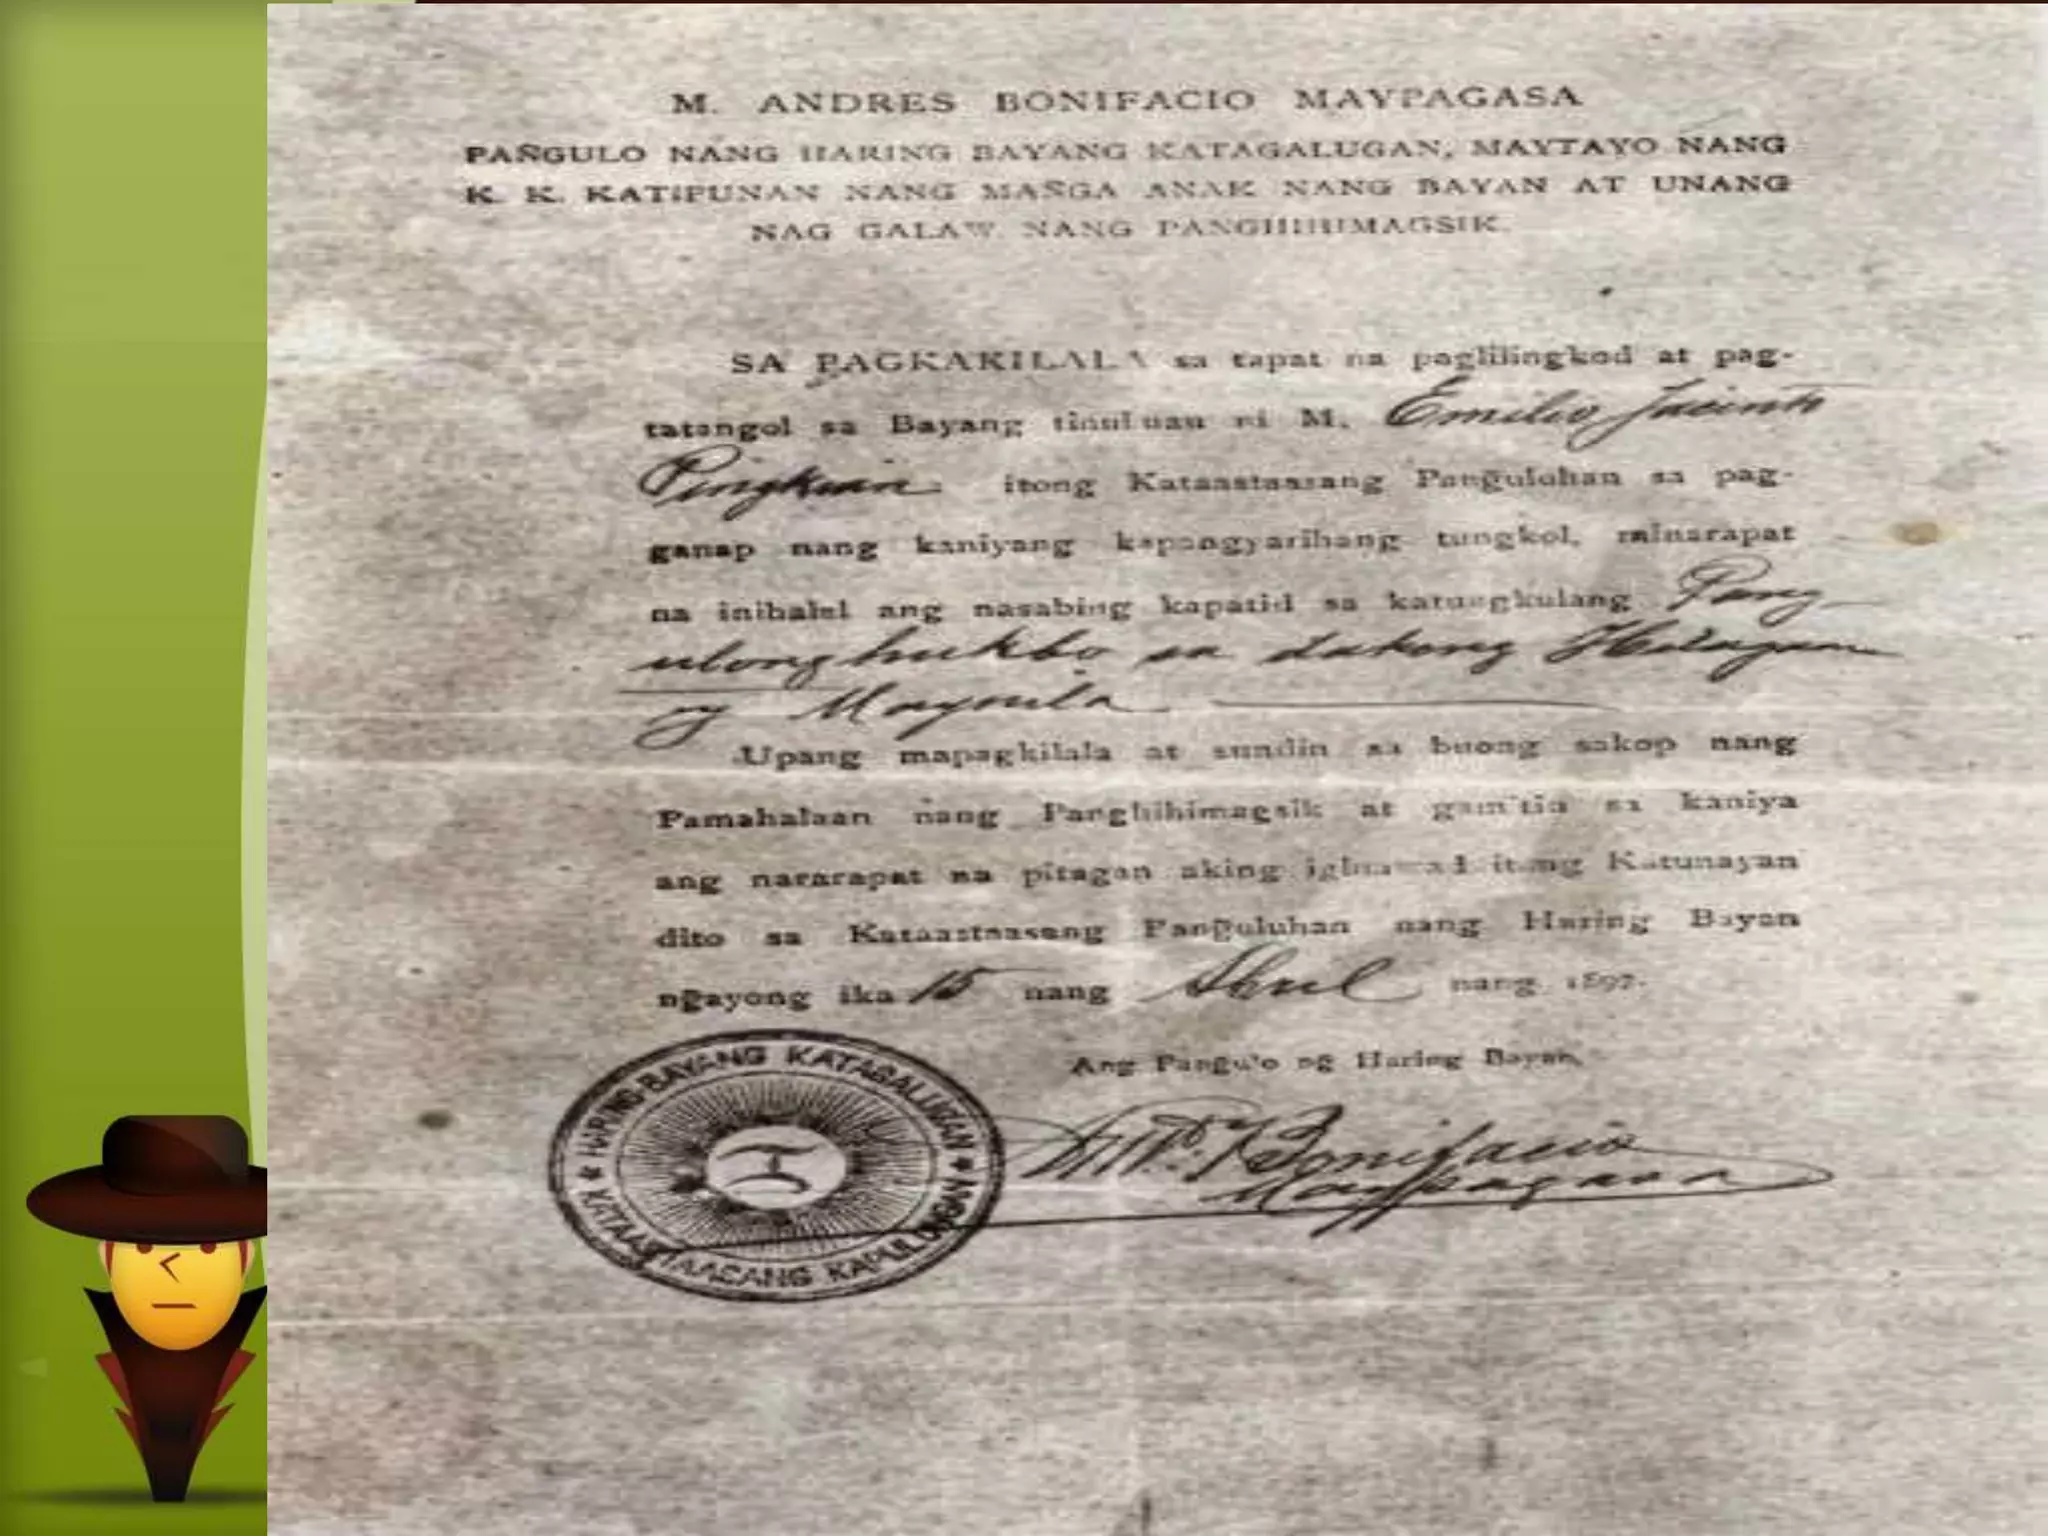 M. ANDRES BONIFACIO MAYPAGASA
PAÑGULO NANG HARING BAYANG KATAGALUGAN, MAYTAYO NANG
K. K. KATIPUNAN NANG MAÑGA ANAK NANG BAYAN AT UNANG
NAG GALAW NANG PANGHIHIMAGSIK.
SA PAGKAKILALA sa tapat na paglilingkod at pag-
tatangol sa Bayang tinubuan ni M. Emilio Jacinto
Pingkian itong Kataastaasang Pang̃uluhan sa pag-
ganap nang kaniyang kapangyarihang tungkol, minarapat
na inihalal ang nasabing kapatid sa katungkulang Pang-
ulong hukbo sa dakong Hilagaan
ng Maynila
Upang mapagkilala at sundin sa buong sakop nang
Pamahalaan nang Panghihimagsik at gam'tin sa kaniya
ang nararapat na pitagan aking iginawad itong Katunayan
dito sa Kataastaasang Pang̃uluhan nang Haring Bayan
ng̃ayong ika 15 nang Abril nang 1897.
Ang Pang̃u'o ng̃ Haring Bayan,
HARING-BAYANG KATAGALUGAN
KATAASTAASANG KAPULUNGAN
And. Bonifacio
Maypagasa